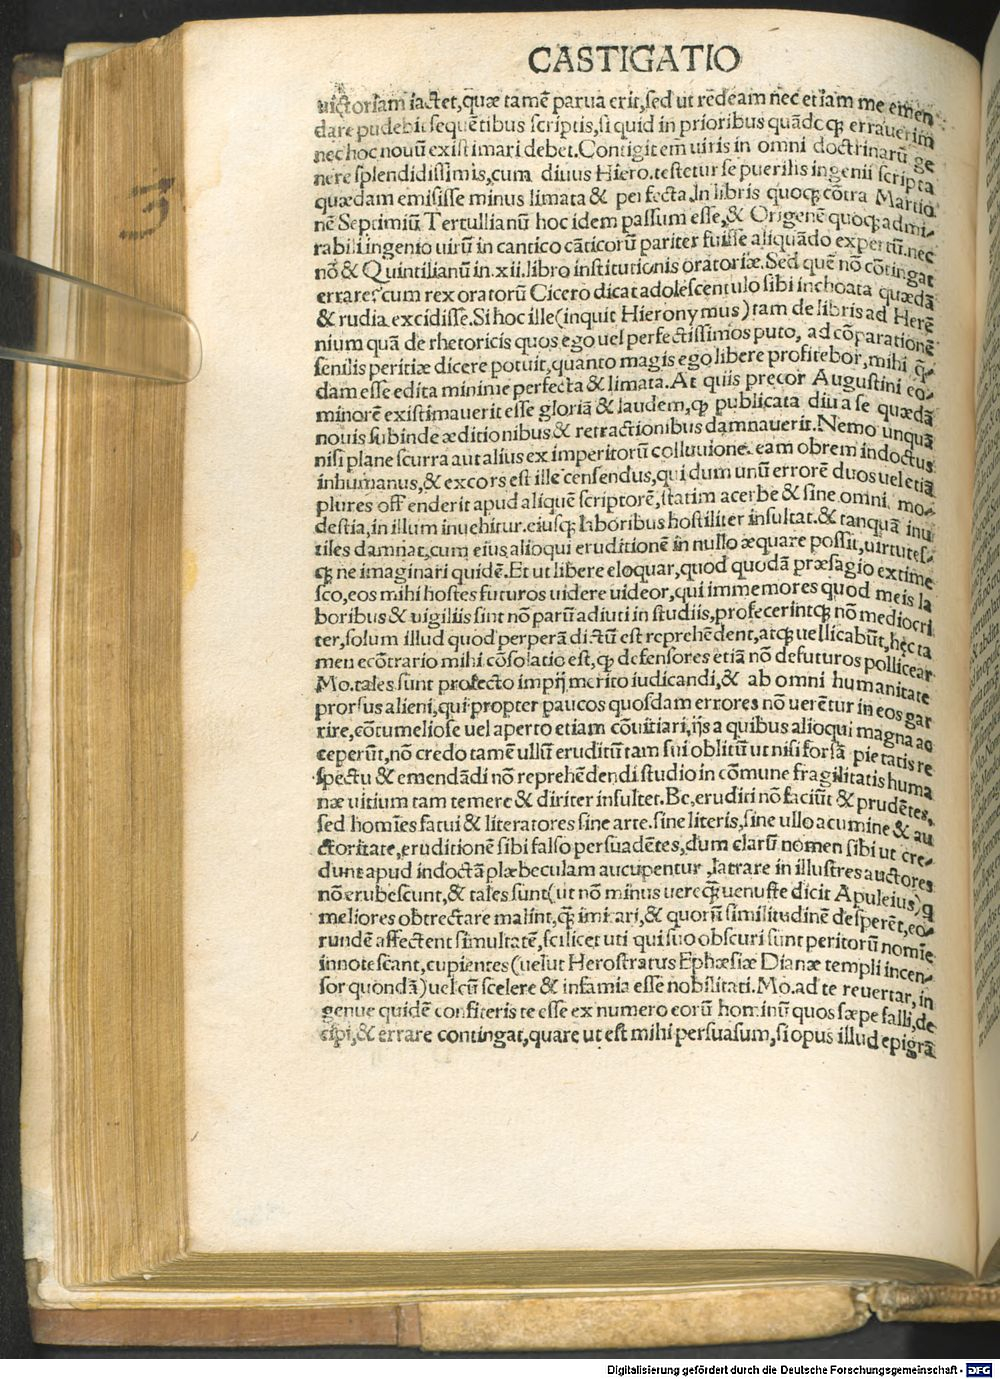 CASTIGATIO
uictoriam iactet,quæ tamē parua erit,sed ut rēdeam nec etiam me emen
dare pudebit sequētibus scriptis,si quid in prioribus quādoꝗ errauerim
nec hoc nouū existimari debet.Contigit em̄ uiris in omni doctrinarū ge
nere splendidissimis,cum diuus Hiero.testetur se puerilis ingenii scripta
quædam emisisse minus limata & perfecta.In libris quoꝗ cōtra Martio
nē Septimiū Tertullianū hoc idem passum esse,& Origenē quoꝗ admi-
rabili ingenio uirū in cantico cāticorū pariter fuisse aliquādo expertū.nec
nō & Quintilianū in.xii.libro institutionis oratoriæ.Sed quē nō cōtingat
errare?cum rex oratorū Cicero dicat adolescentulo sibi inchoata quædā
& rudia excidisse.Si hoc ille(inquit Hieronymus)tam de libris ad Herē
nium quā de rhetoricis quos ego uel perfectissimos puto, ad cōparationē
senilis peritiæ dicere potuit,quanto magis ego libere profitebor,mihi q̄-
dam esse edita minime perfecta & limata.At quis precor Augustini eo-
minorē existimauerit esse gloriā & laudem,ꝙ publicata diu a se quædā
nouis subinde æditionibus & retractionibus damnauerit.Nemo unquā
nisi plane scurra aut alius ex imperitorū colluuione. eam obrem indoctus
inhumanus,& excors est ille censendus,qui dum unū errorē duos uel etiā
plures offenderit apud aliquē scriptorē,statim acerbe & sine omni mo-
destia,in illum inuehitur.eiusꝗ laboribus hostiliter insultat.& tanquā inu
tiles damnat,cum eius alioqui eruditionē in nullo æquare possit,uirtutes-
ꝗ ne imaginari quidē.Et ut libere eloquar,quod quodā præsagio extime
sco,eos mihi hostes futuros uidere uideor,qui immemores quod meis la
boribus & uigiliis sint nō parū adiuti in studiis,profecerintꝗ nō mediocri
ter,solum illud quod perperā dictū est reprehēdent,atꝗ uellicabūt,hęc ta
men ecōtrario mihi cōsolatio est,ꝙ defensores etiā nō defuturos pollicear
Mo.tales sunt profecto impij merito iudicandi,& ab omni humanitate
prorsus alieni,qui propter paucos quosdam errores nō uerētur in eos gar
rire,cōtumeliose uel aperto etiam cōuitiari,ijs a quibus alioqui magna ac
ceperūt,nō credo tamē ullū eruditū tam sui oblitū ut nisi forsā pietatis re
spectu & emendādi nō reprehēdendi studio in cōmune fragilitatis huma
næ uitium tam temere & diriter insultet.Be.eruditi nō faciūt & prudētes,
sed homīes fatui & literatores sine arte.sine literis,sine ullo acumine & au
ctoritate,eruditionē sibi falso persuadētes,dum clarū nomen sibi ut cre-
dunt apud indoctā plæbeculam aucupentur latrare in illustres auctores
nō erubescunt,& tales sunt(ut nō minus uere ꝗ̄ uenuste dicit Apuleius)q
meliores obtrectare malint,ꝗ̄ imitari,& quorū similitudinē desperēt,eo-
rundē affectent simultatē,scilicet uti qui suo obscuri sunt peritorū nomīe
innotescant,cupientes(uelut Herostratus Ephæsiæ Dianæ templi incen-
sor quondā)uel cū scelere & infamia esse nobilitati.Mo.ad te reuertar,in
genue quidē confiteris te esse ex numero eorū hominū quos sæpe falli,de
cipi,& errare contingat,quare ut est mihi persuasum,si opus illud epigrā
3
Digitalisierung gefördert durch die Deutsche Forschungsgemeinschaft - DFG